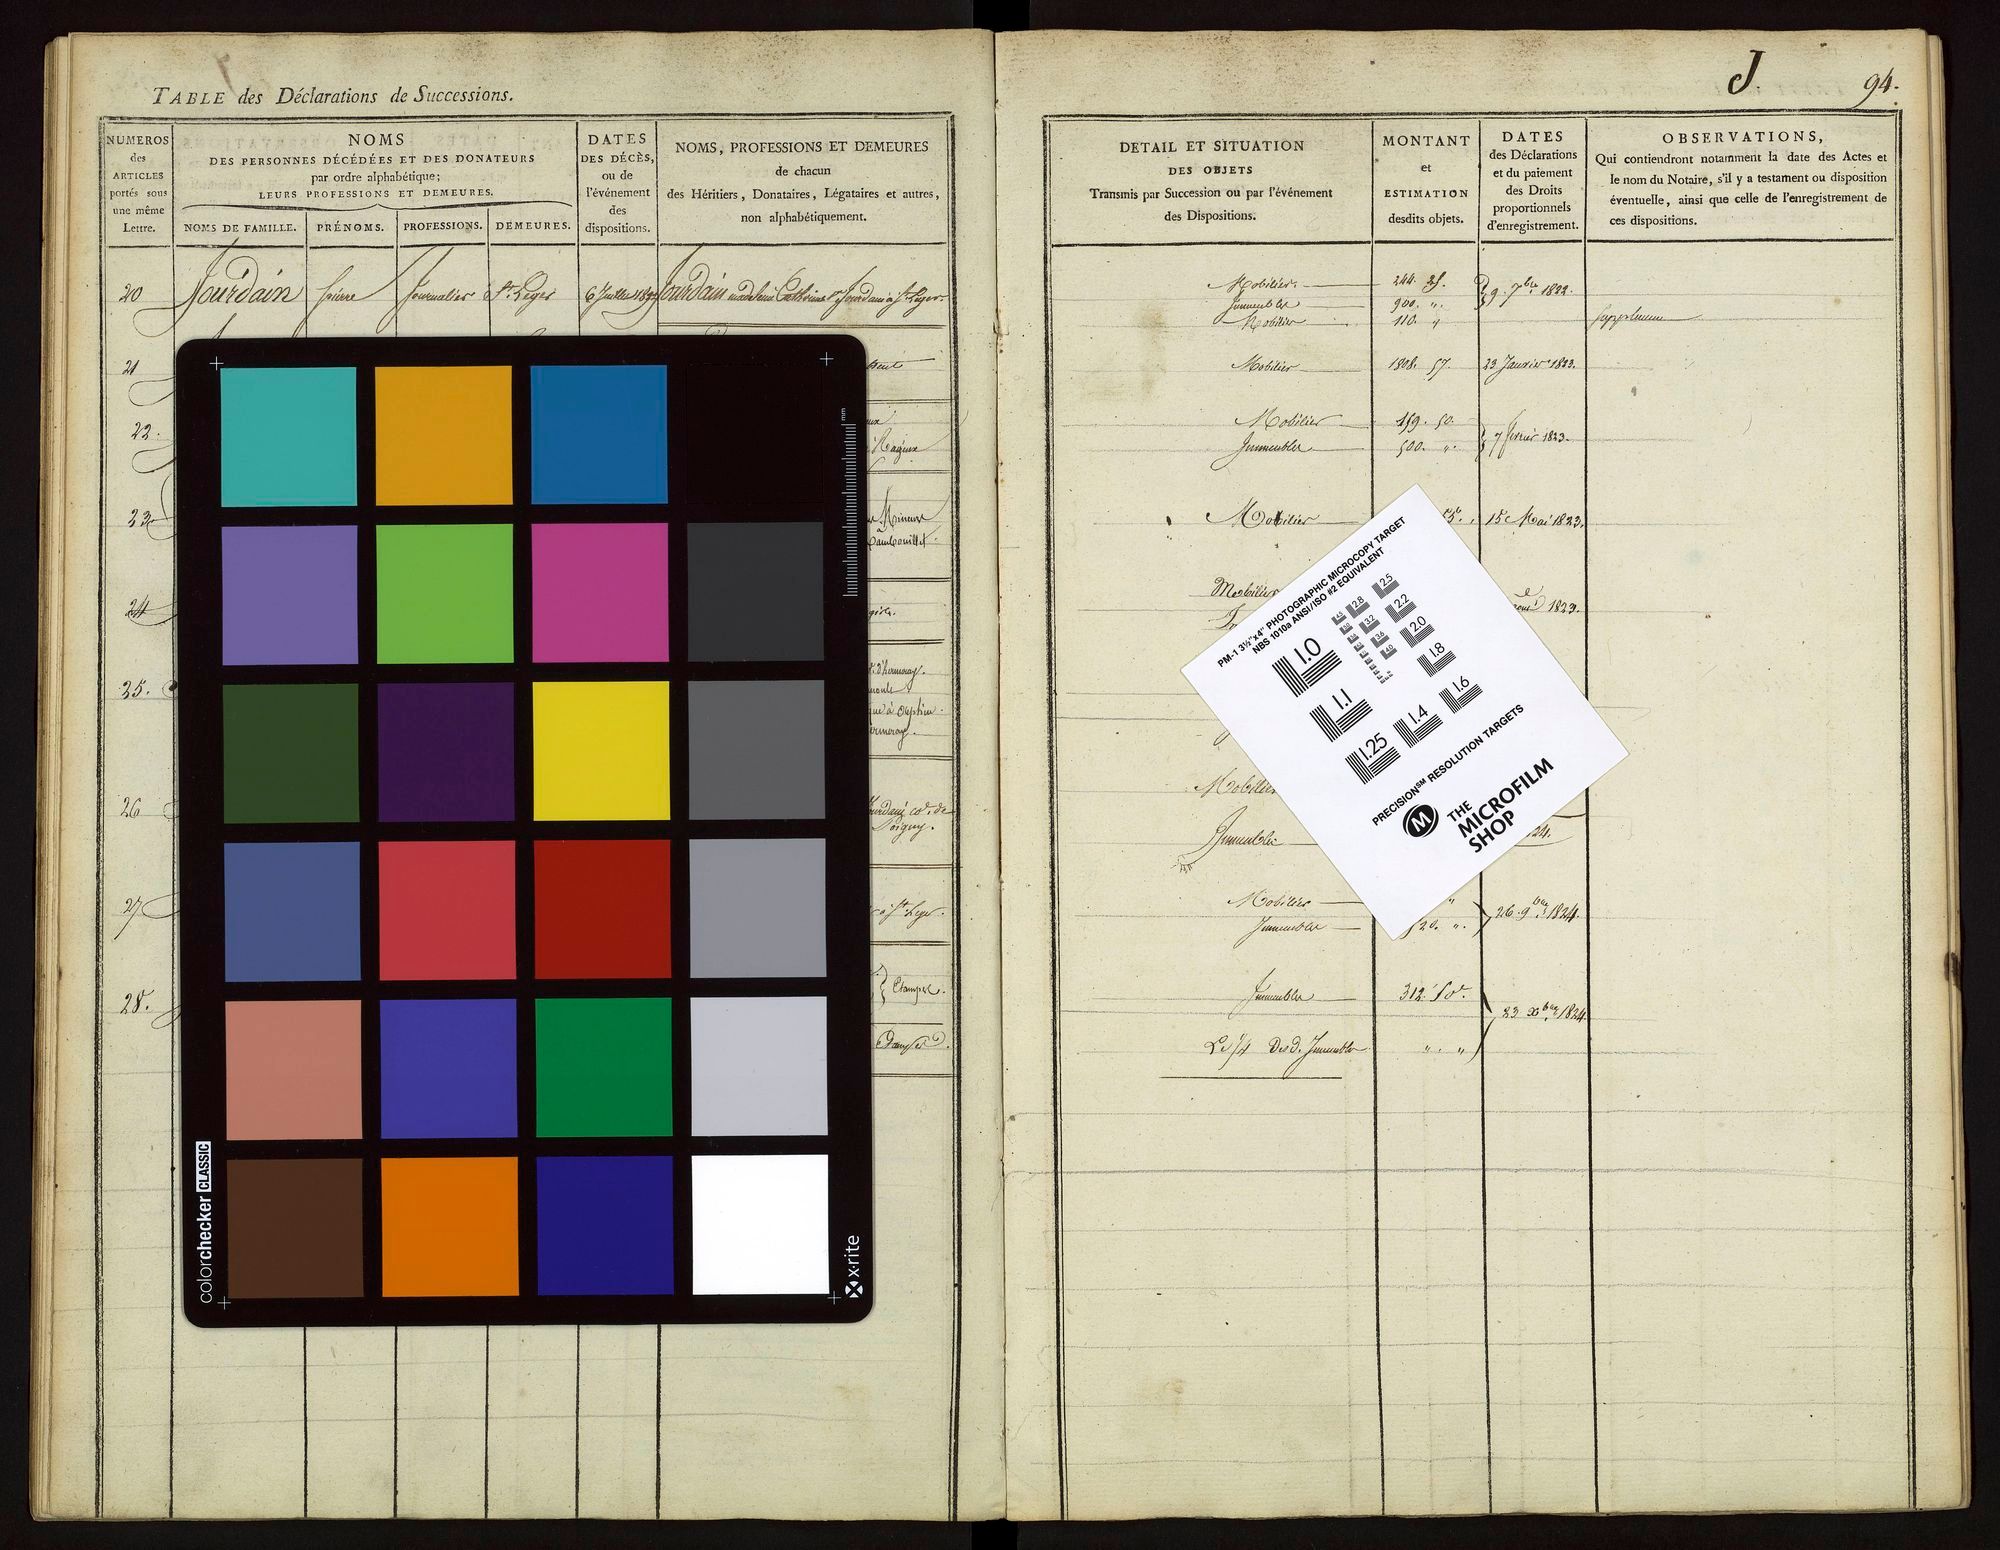 TABLE des Déclarations de Successions.
NUMEROS
des
ARTICLES
portés sous
une même
Lettre.
NOMS
DES PERSONNES DÉCÉDÉES ET DES DONATEURS
par ordre alphabétique;
LEURS PROFESSIONS ET DEMEURES.
NOMS DE FAMILLE.
PRÉNOMS.
PROFESSIONS.
DEMEURES.
DATES
DES DÉCÈS,
ou de
l'événement
des
dispositions.
NOMS, PROFESSIONS ET DEMEURES
de chacun
des Héritiers, Donataires, Légataires et autres,
non alphabétiquement.
20 Jourdain pierre Journalier St. Leger 6 Juillet Jourdain madeleine Catherine Jourdain à St. Leger.
21
22.
Mineurs
23 Rambouillet
24
25.
26
27 à St. Leger.
28. Etampes.
colorchecker CLASSIC
x-rite
mm
J
94.
DETAIL ET SITUATION
DES OBJETS
Transmis par Succession ou par l'événement
des Dispositions.
MONTANT
et
ESTIMATION
desdits objets.
DATES
des Déclarations
et du paiement
des Droits
proportionnels
d'enregistrement.
OBSERVATIONS,
Qui contiendront notamment la date des Actes et
le nom du Notaire, s'il y a testament ou disposition
éventuelle, ainsi que celle de l'enregistrement de
ces dispositions.
Mobilier. 244.
Immeubles 900. " 9. 7bre 1822.
Mobilier 110. " Supplement
Mobilier 1808. 57. 23 Janvier 1823.
Mobilier 159. 50.
Immeubles 500. " 7 fevrier 1823.
Mobilier 55. 15 Mai 1823.
Mobilier
1823.
Mobilier
Immeubles 24.
Mobilier "
Immeubles 20. " 26. 9bre 1824.
Immeubles 312. 50.
23 xbre 1824.
Le 1/4 Desd. Immeubles " "
PM-1 3½"x4" PHOTOGRAPHIC MICROCOPY TARGET
NBS 1010a ANSI/ISO #2 EQUIVALENT
1.0
1.1
1.25
1.4
1.6
1.8
2.0
2.2
2.5
2.8
3.2
3.6
4.0
PRECISION℠ RESOLUTION TARGETS
M THE
MICROFILM
SHOP